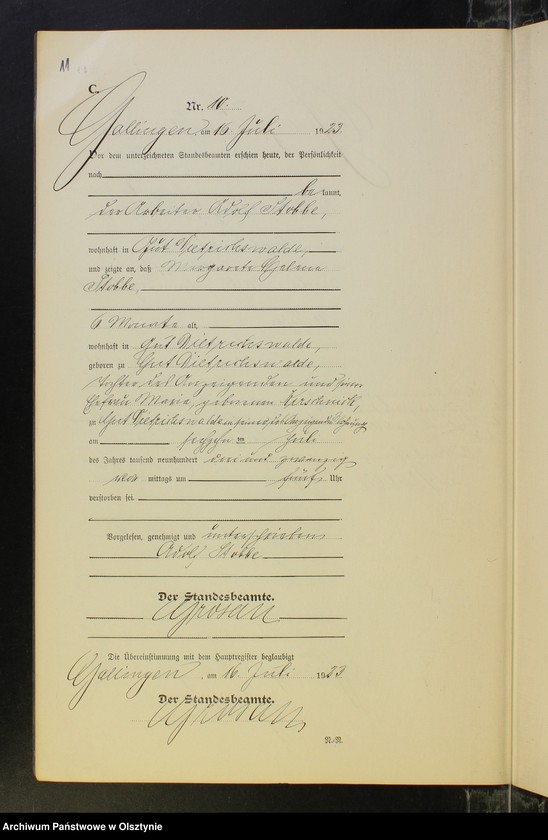 11
C.
Nr. 10.
Gallingen, am 16. Juli 1923.
Vor dem unterzeichneten Standesbeamten erschien heute, der Persönlichkeit
nach
be kannt,
der Arbeiter Adolf Stobbe,
wohnhaft in Gut Dietrichswalde,
und zeigte an, daß Margarete
Stobbe,
6 Monate alt,
wohnhaft in Gut Dietrichswalde,
geboren zu Gut Dietrichswalde,
Tochter des Anzeigenden und seiner
Ehefrau Maria, geborenen
zu Gut Dietrichswalde in seiner des Anzeigenden Wohnung
am Juli
des Jahres tausend neunhundert drei und zwanzig
mittags um fünf Uhr
verstorben sei.
Vorgelesen, genehmigt und unterschrieben
Adolf Stobbe
Der Standesbeamte.
Die Übereinstimmung mit dem Hauptregister beglaubigt
Gallingen, am 16. Juli 1923
Der Standesbeamte.
Archiwum Państwowe w Olsztynie